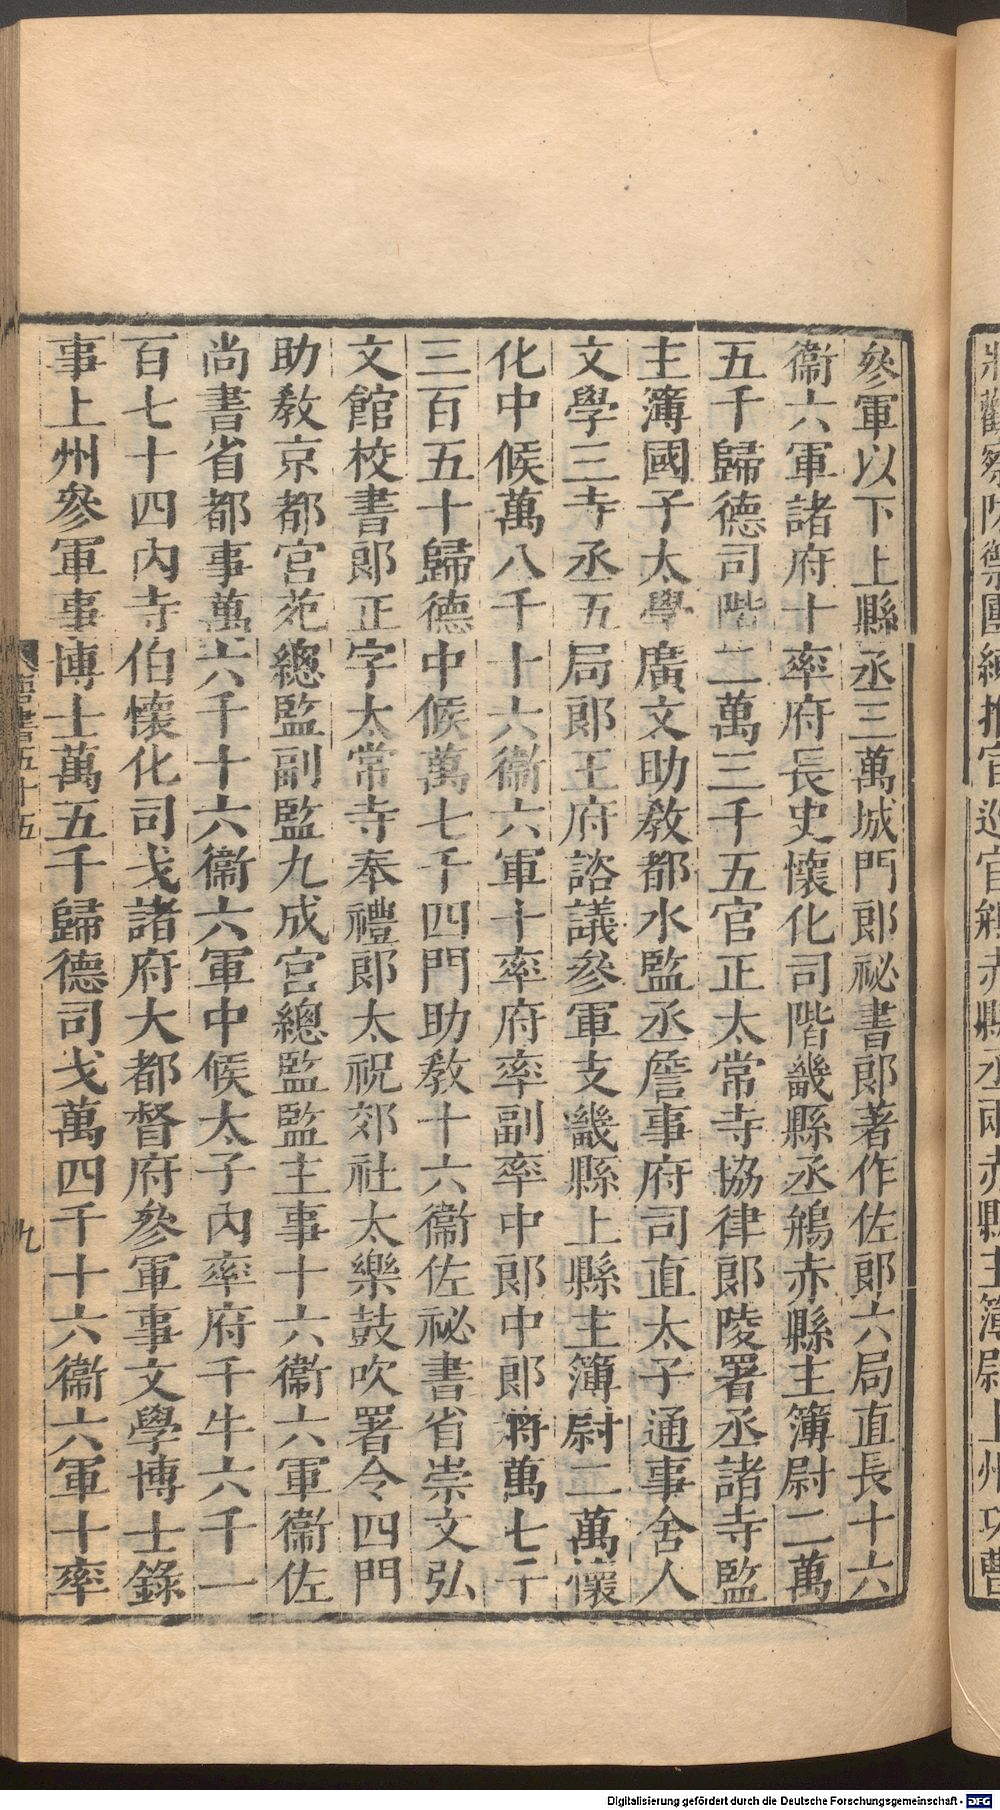 參軍以下上縣丞三萬城門郎祕書郎著作佐郎六局直長十六
衞六軍諸府十率府長史懷化司階畿縣丞鵷赤縣主簿尉二萬
五千歸德司階二萬三千五官正太常寺協律郎陵署丞諸寺監
主簿國子太學廣文助教都水監丞詹事府司直太子通事舍人
文學三寺丞五局郎王府諮議參軍支畿縣上縣主簿尉二萬懷
化中候萬八千十六衞六軍十率府率副率中郎中郎將萬七千
三百五十歸德中候萬七千四門助教十六衞佐祕書省崇文弘
文館校書郎正字太常寺奉禮郎太祝郊社太樂鼓吹署令四門
助教京都宮苑總監副監九成宮總監監主事十六衞六軍衞佐
尚書省都事萬六千十六衞六軍中候太子內率府千牛六千一
百七十四內寺伯懷化司戈諸府大都督府參軍事文學博士錄
事上州參軍事博士萬五千歸德司戈萬四千十六衞六軍十率
唐書五十五
九
Digitalisierung gefördert durch die Deutsche Forschungsgemeinschaft - DFG